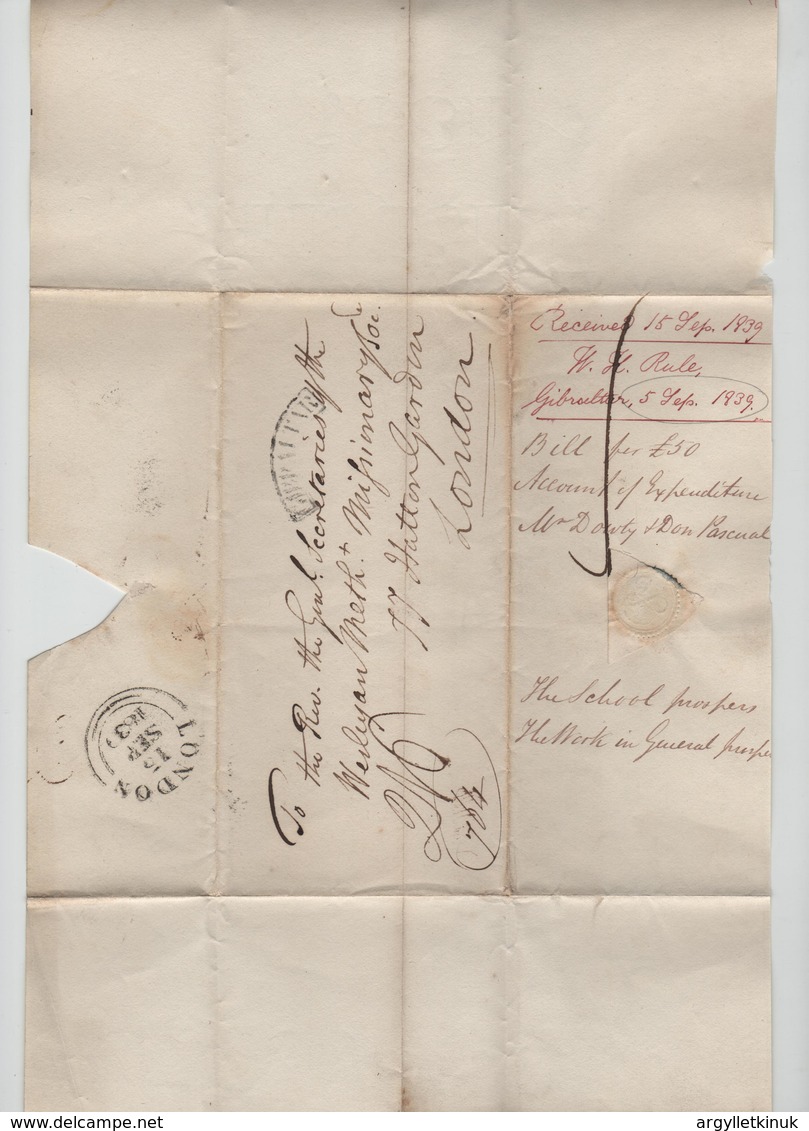 Received 15 Sep. 1839
W. H. Rule,
Gibraltar, 5 Sep. 1839.
Bill for £50
Account of Expenditure
Mr Dowty & Don Pascual
The School prospers
The Work in General prospe
To the Rev. the Genl. Secretaries of the
Wesleyan Meth.t Missionary Soc.
77 Hatton Garden
London.
2/6
784
GIBRALTAR
LONDON
15
SEP
1839
delcampe.net
argylletkinuk